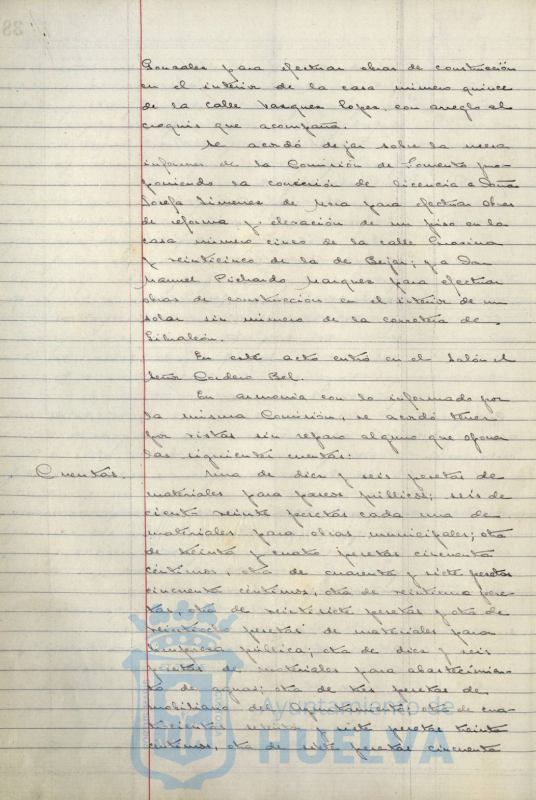 Gonzales para efectuar obras de construcción
en el interior de la casa número quince
de la Calle Vazquez Lopez, con arreglo al
croquis que acompaña.
Se acordó dejar sobre la mesa
informes de la Comisión de Fomento pro-
poniendo la concesión de licencia a Doña
Josefa Jimenez de Mora para efectuar obras
de reforma y elevación de un piso en la
casa número cinco de la calle
y veinticinco de la de Bejar; y a Don
Manuel Pichardo Marquez para efectuar
obras de construcción en el interior de un
solar sin número de la carretera de
Gibraleón.
En este acto entró en el salón el
Señor Cordero Bel.
En armonia con lo informado por
la misma Comisión, se acordó tener
por vistas sin reparo alguno que oponer
las siguientes cuentas:
Cuentas. Una de diez y seis pesetas de
materiales para paseos públicos; seis de
ciento veinte pesetas cada una de
materiales para obras municipales; otra
de treinta y cuatro pesetas cincuenta
céntimos, otra de cuarenta y siete pesetas
cincuenta céntimos, otra de veintiuna pese-
tas, otra de veintisiete pesetas y otra de
pesetas de materiales para
limpieza pública; otra de diez y seis
pesetas de materiales para abastecimien-
to de aguas; otra de tres pesetas de
mobiliario del Ayuntamiento; otra de cua-
trocientas y siete pesetas treinta
céntimos, otra de siete pesetas cincuenta
Ayuntamiento de
HUELVA